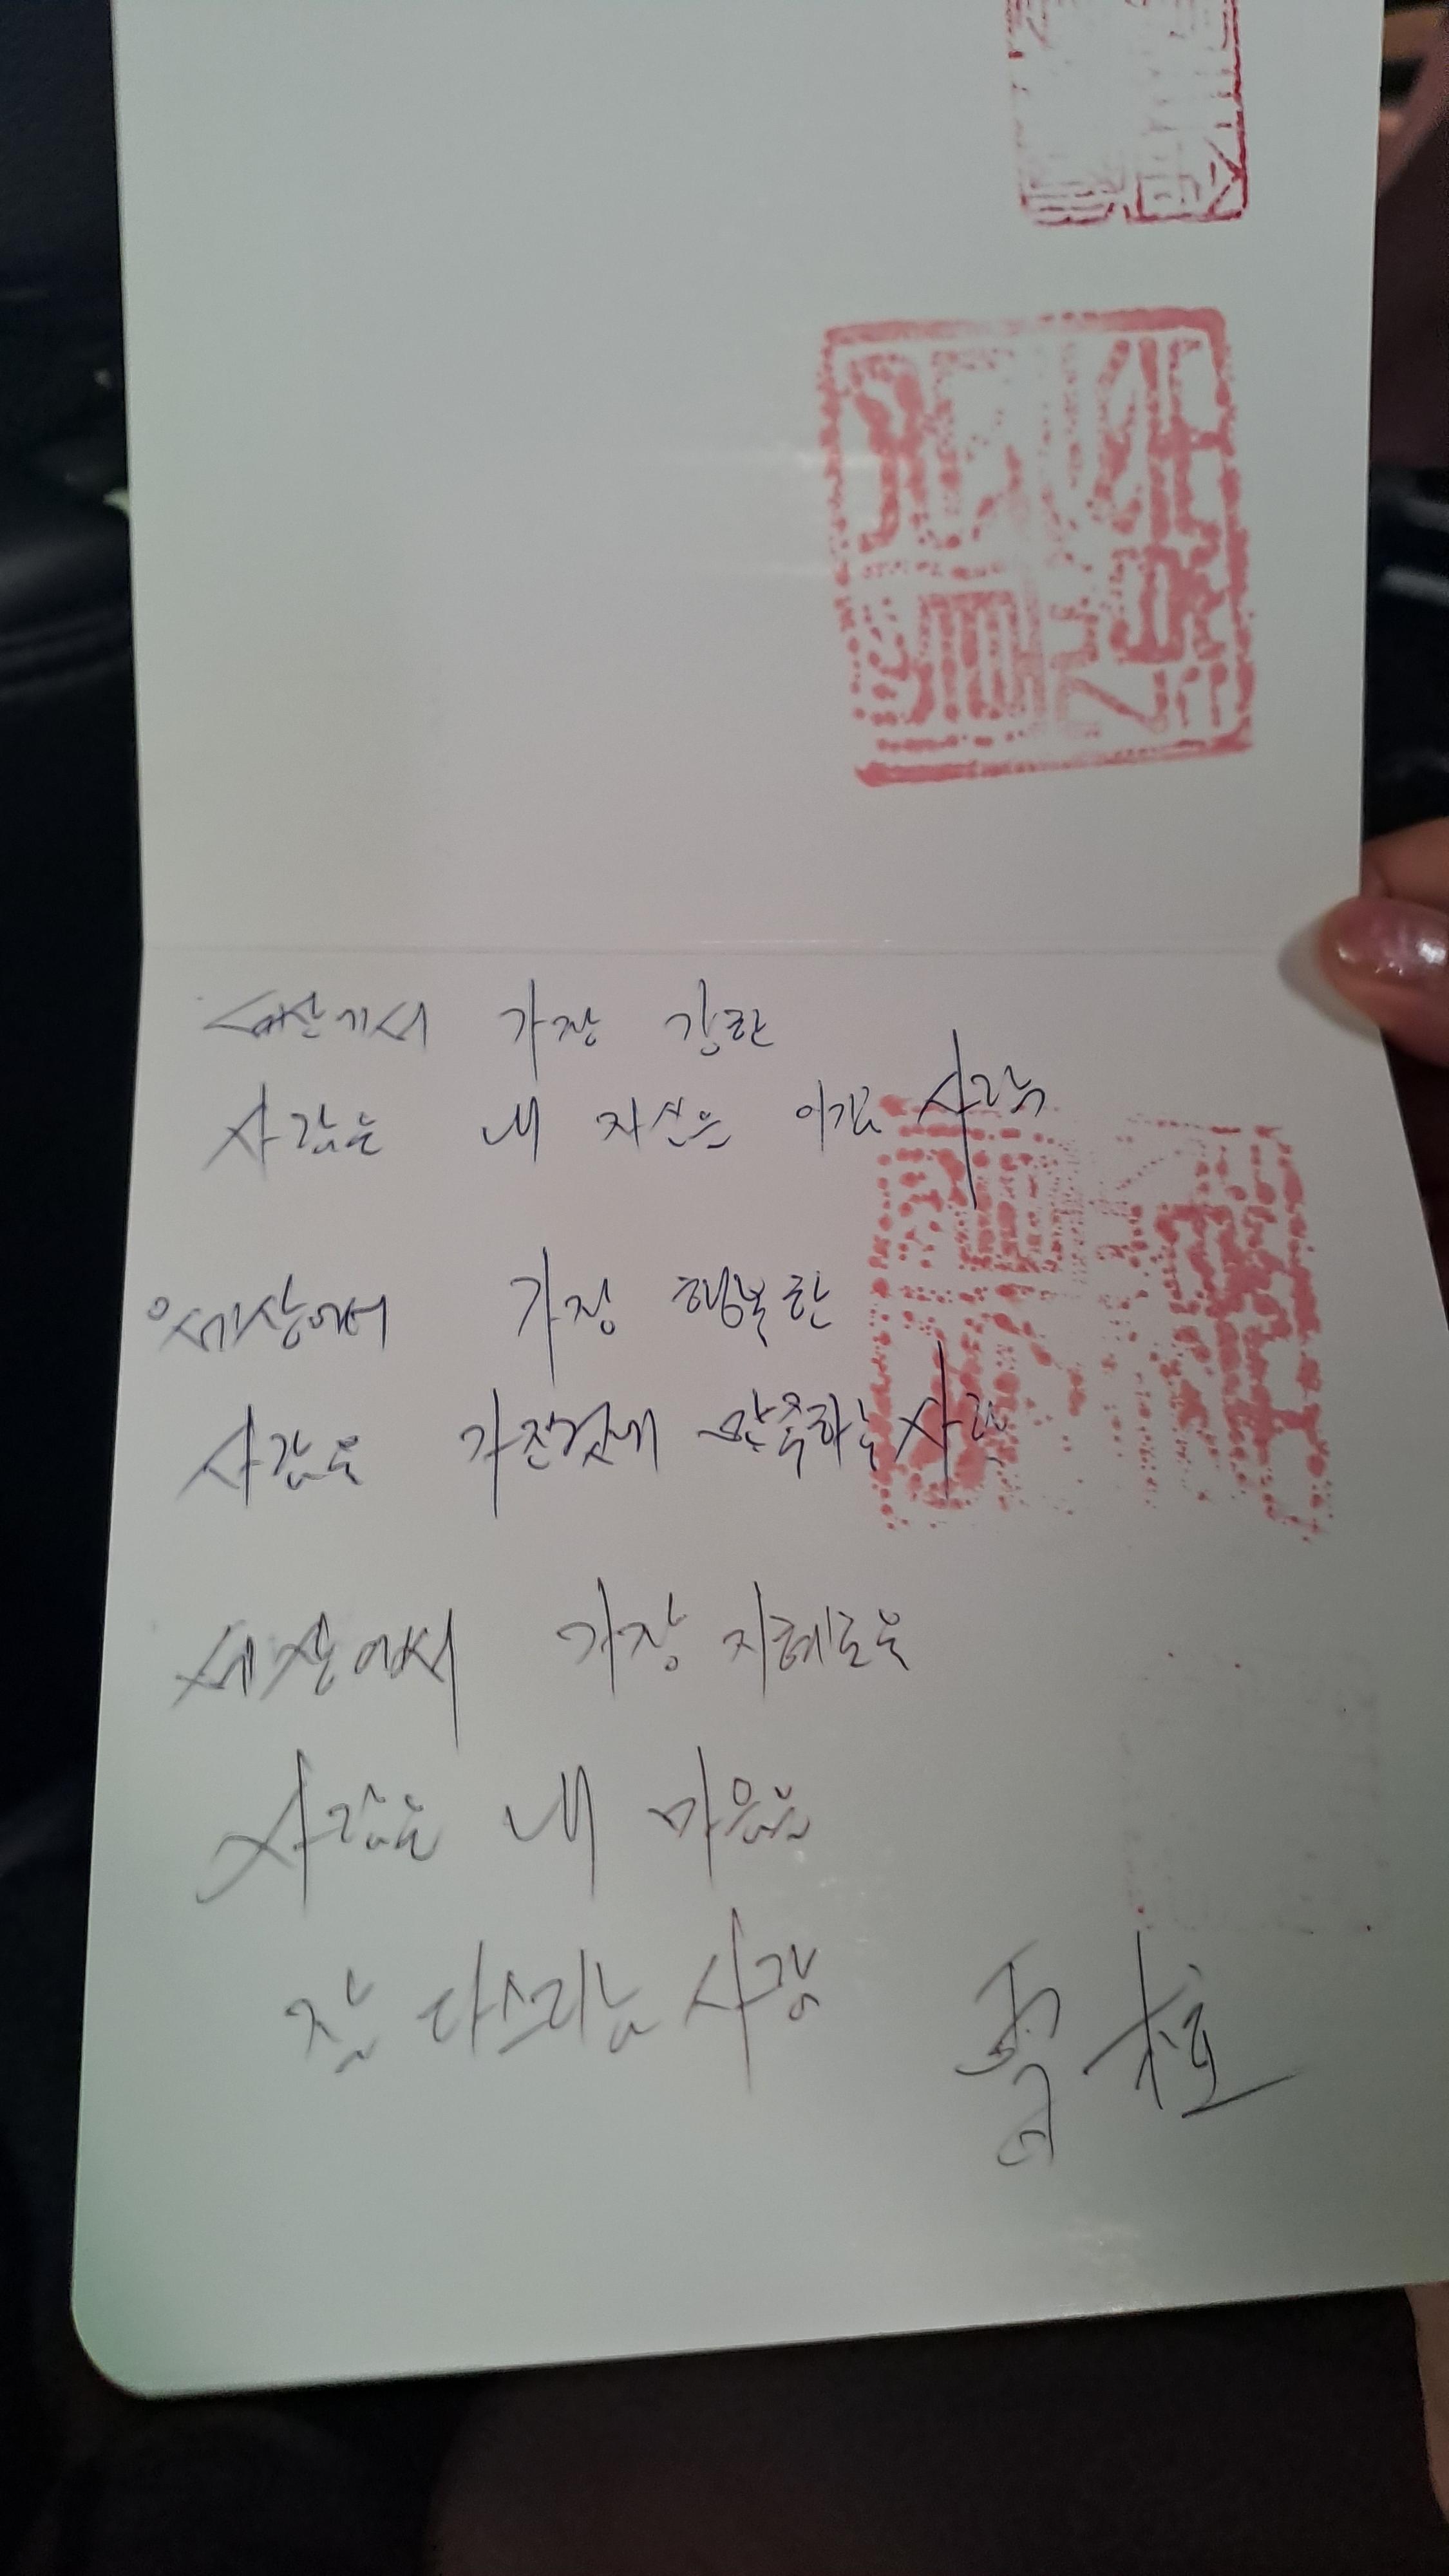 세상에서 가장 강한
사람은 내 자신을 이긴 사람
세상에서 가장 행복한
사람은 가진것에 만족하는 사람
세상에서 가장 지혜로운
사람은 내 마음을
잘 다스리는 사람